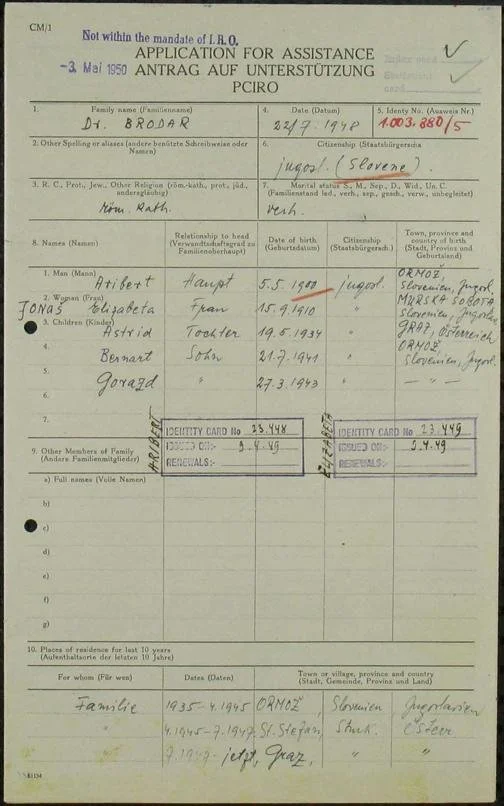 CM/1
Not within the mandate of I.R.O.
-3. Mai 1950
APPLICATION FOR ASSISTANCE
ANTRAG AUF UNTERSTÜTZUNG
PCIRO
1. Family name (Familienname)
Dr. BRODAR
4. Date (Datum)
22/7.1948
5. Identy No. (Ausweis Nr.)
1.003.880/5
2. Other Spelling or aliases (andere benützte Schreibweise oder Namen)
6. Citizenship (Staatsbürgerschs
jugosl. (Slovene).
3. R. C., Prot., Jew., Other Religion (röm.-kath., prot., jüd., andersgläubig)
Röm. Kath.
7. Marital status S., M., Sep., D., Wid., Un. C.
(Familienstand led., verh., sep., gesch., verw., unbegleitet)
verh.
8. Names (Namen)
Relationship to head (Verwandtschaftsgrad zu Familienoberhaupt)
Date of birth (Geburtsdatum)
Citizenship (Staatsbürgersch.)
Town, province and country of birth (Stadt, Provinz und Geburtsland)
1. Man (Mann)
Aribert Haupt 5.5.1900 jugosl. ORMOŽ, Slovenien, Jugosl.
2. Woman (Frau)
JONAŠ Elizabeta Frau 15.9.1910 " MURSKA SOBOTA Slovenien, Jugoslav
3. Children (Kinder)
Astrid Tochter 19.5.1934 " GRAZ, Österreich
4.
Bernart Sohn 21.7.1941 " ORMOŽ, Slovenien, Jugosl.
5.
Gorazd " 27.3.1943 " — " —
6.
7.
ARIBERT
IDENTITY CARD No 23.448
ISSUED ON:- 9.4.49
RENEWALS:-
ELIZABETA
IDENTITY CARD No 23.449
ISSUED ON:- 9.4.49
RENEWALS:-
9. Other Members of Family
(Andere Familienmitglieder)
a) Full names (Volle Namen)
b)
c)
d)
e)
f)
g)
10. Places of residence for last 10 years
(Aufenthaltsorte der letzten 10 Jahre)
For whom (Für wen)
Dates (Daten)
Town or village, province and country
(Stadt, Gemeinde, Provinz und Land)
Familie 1935-4.1945 ORMOŽ, Slovenien Jugoslavien
" 4.1945-7.1947 St. Stefan, Stmk. Österr
" 7.1947- jetzt, Graz, " "